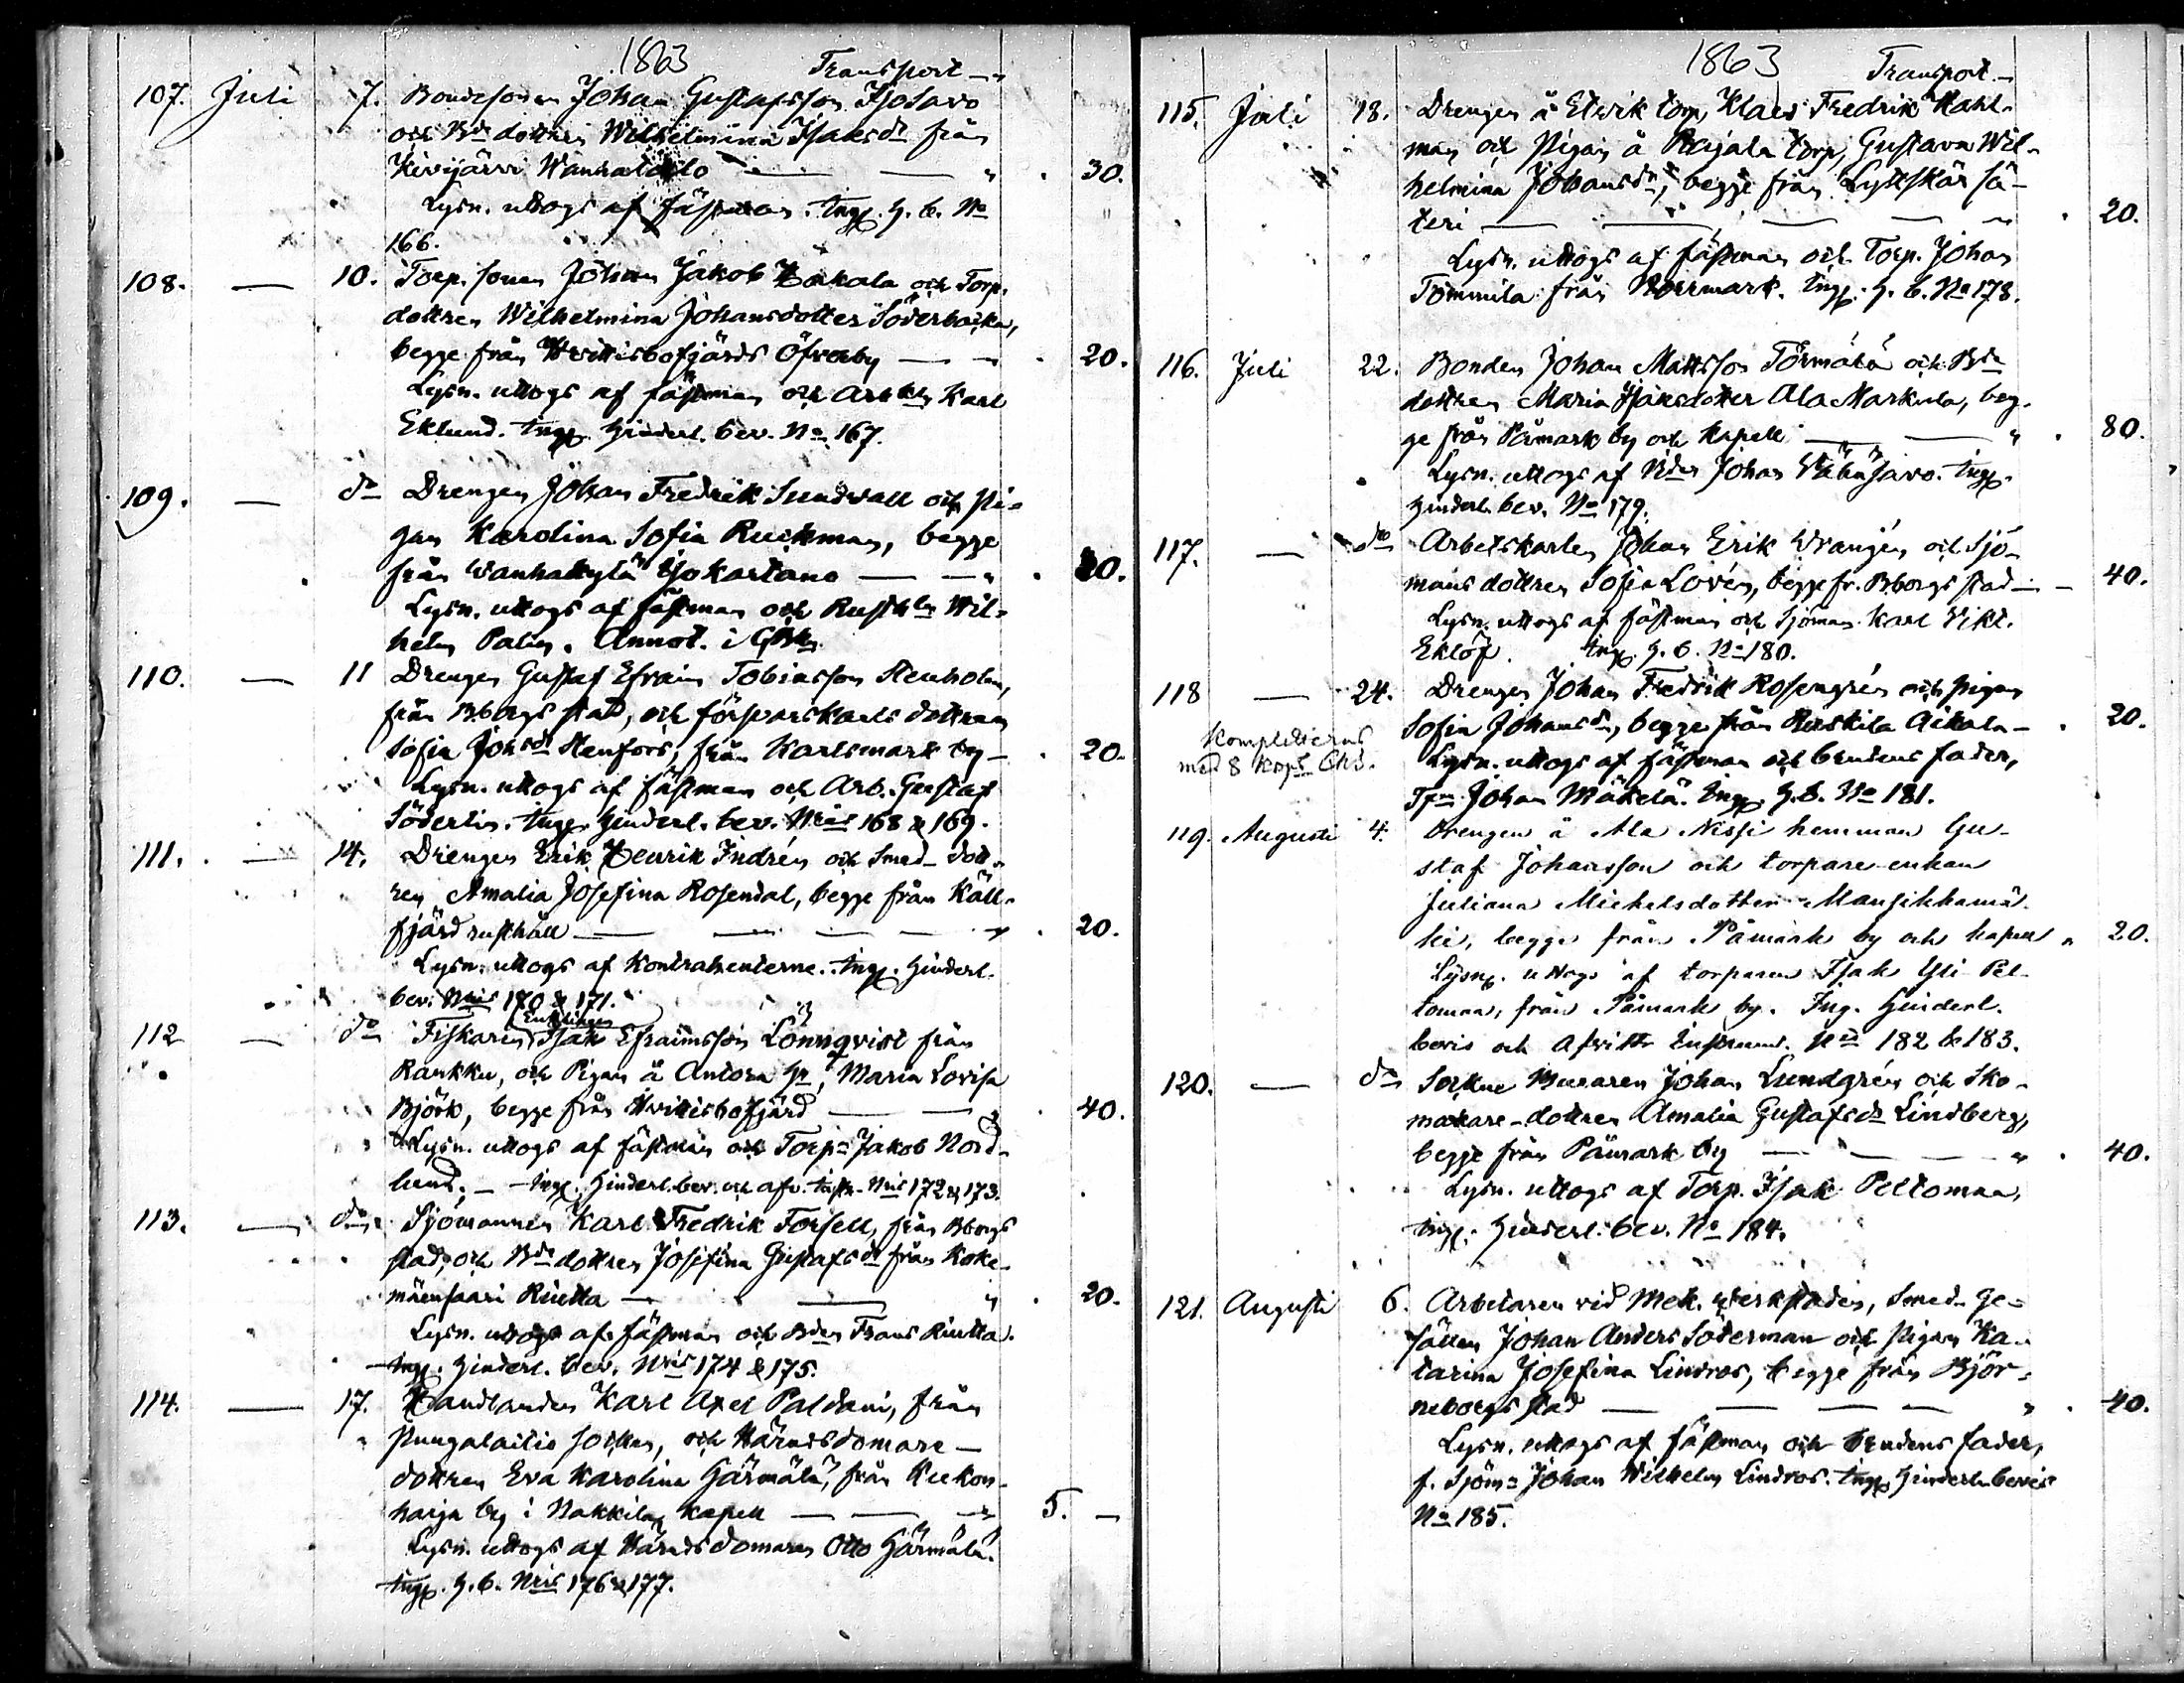 1863 Transport —
107. Juli 7. Bondesonen Johan Gustafsson Isosavo
och Bde dottren Wilhelmina Isaksdr från
Kivijärvi Wanhatalo — — " . 30.
Lysn. uttogs af fästman. Ingg. H. b. No
166.
108. — 10. Torp. sonen Johan Jakob Hakala och Torp.
dottren Wilhelmina Johansdotter Söderbacka,
begge från Hvittisbofjärds Öfverby — — . 20.
Lysn. uttogs af fästman och Arbkln Karl
Eklund. Ingg. Hinderl. bev. No 167.
109. — do Drengen Johan Fredrik Sundvall och Pi-
gan Karolina Sofia Ruckman, begge
från Wanhakylä Yjokartano — — " . 20.
Lysn. uttogs af fästman och Rusthln Wil-
helm Palin. Annot. i
110. — 11 Drengen Gustaf Efraim Tobiasson Stenholm,
från Bborgs stad, och försvarskarls dottren
Sofia Johsdr Stenfors, från Karlsmark by — . 20.
Lysn. uttogs af fästman och Arb. Gustaf
Söderlin. Ingg. Hinderl. bev. Nris 168 & 169.
111. — 14. Drengen Erik Henrik Indrén och Smed-dott-
ren Amalia Josefina Rosendal, begge från Käll-
fjärd rusthåll — — — — " . 20.
Lysn. uttogs af Kontrahenterne. Ingg. Hinderl.
bev. Nris 170 & 171.
112 — do Fiskaren (Enklingen) Isak Efraimsson Lönnqvist från
Rankku, och Pigan å Antora Hn, Maria Lovisa
Björk, begge från Hvittisbofjärd — — . 40.
Lysn. uttogs af fästman och Torpn Jakob Nord-
lund. — Ingg. Hinderl. bev. och afv. Nris 172 & 173.
113. — do Sjömannen Karl Fredrik Forsell, från Bborgs
stad, och Bde dottren Josefina Gustafsdr från Koke-
mäensaari Riutta — — " . 20.
Lysn. uttogs af fästman och Bden Frans Riutta.
Ingg. Hinderl. bev. Nris 174 & 175.
114. — 17. Handlanden Karl Axel Paldani, från
Pungalaitio socken, och Häradsdomare-
dottren Eva Karolina Härmälä, från Kukon-
harja by i Nakkila kapell — — — 5. —
Lysn. uttogs af Häradsdomaren Otto Härmälä.
Ingg. H. b. Nris 176 & 177.
1863 Transport —
115. Juli 18. Drengen å Etvik torp, Klaes Fredrik Kahl-
man och Pigan å Rajala torp, Gustava Wil-
helmina Johansdr, begge från Lyttskär sä-
teri — — — — — . 20.
Lysn. uttogs af fästman och Torp. Johan
Tommila från Norrmark. Ingg. H. b. No 178.
116. Juli 22. Bonden Johan Mattsson Törmälä och Bde
dottren Maria Isaksdotter Ala Markula, beg-
ge från Påmark by och Kapell — — " . 80.
Lysn. uttogs af Bden Johan Vähäsavo. Ingg.
Hinderl. bev. No 179.
117. — do Arbetskarlen Johan Erik Wrangén, och Sjö-
mans dottren Sofia Lovén, begge fr. Bborgs stad — — 40.
Lysn. uttogs af fästman och Sjöman Karl Vikt.
Eklöf. Ingg. H. b. No 180.
118 — 24. Drengen Johan Fredrik Rosengrén och pigan
Sofia Johansdr, begge från Ruskila Aikala — . 20.
Kompletteras
med 8 kop.
Lysn. uttogs af fästman och brudens fader,
Johan Mäkelä. Ingg. H. b. No 181.
119. Augusti 4. Drengen å Ala Nissi hemman Gu-
staf Johansson och torpare-enkan
Juliana Michelsdotter Mansikkamä-
ki, begge från Påmark by och kapell " 20.
Lysng. uttogs af torparen Isak Yli Pel-
tomaa, från Påmark by. Ing. Hinderl.
bevis och Afvittr. Instrument. No 182 & 183.
120. — do Sockne Buntaren Johan Lundgrén och Sko-
makare-dottren Amalia Gustafsdr Lindberg,
begge från Påmark by — — — " . 40.
Lysn. uttogs af Torp. Isak Peltomaa,
Ingg. Hinderl. bev. No 184.
121. Augusti 6. Arbetaren vid Mek. Verkstaden, Smed-ge-
sällen Johan Anders Söderman och Pigan Ka-
tarina Josefina Lindros, begge från Björ-
neborgs stad — — — — " . 40.
Lysn. uttogs af fästman och brudens fader,
f. Sjömn Johan Wilhelm Lindros. Ingg. Hinderl. bevis
No 185.